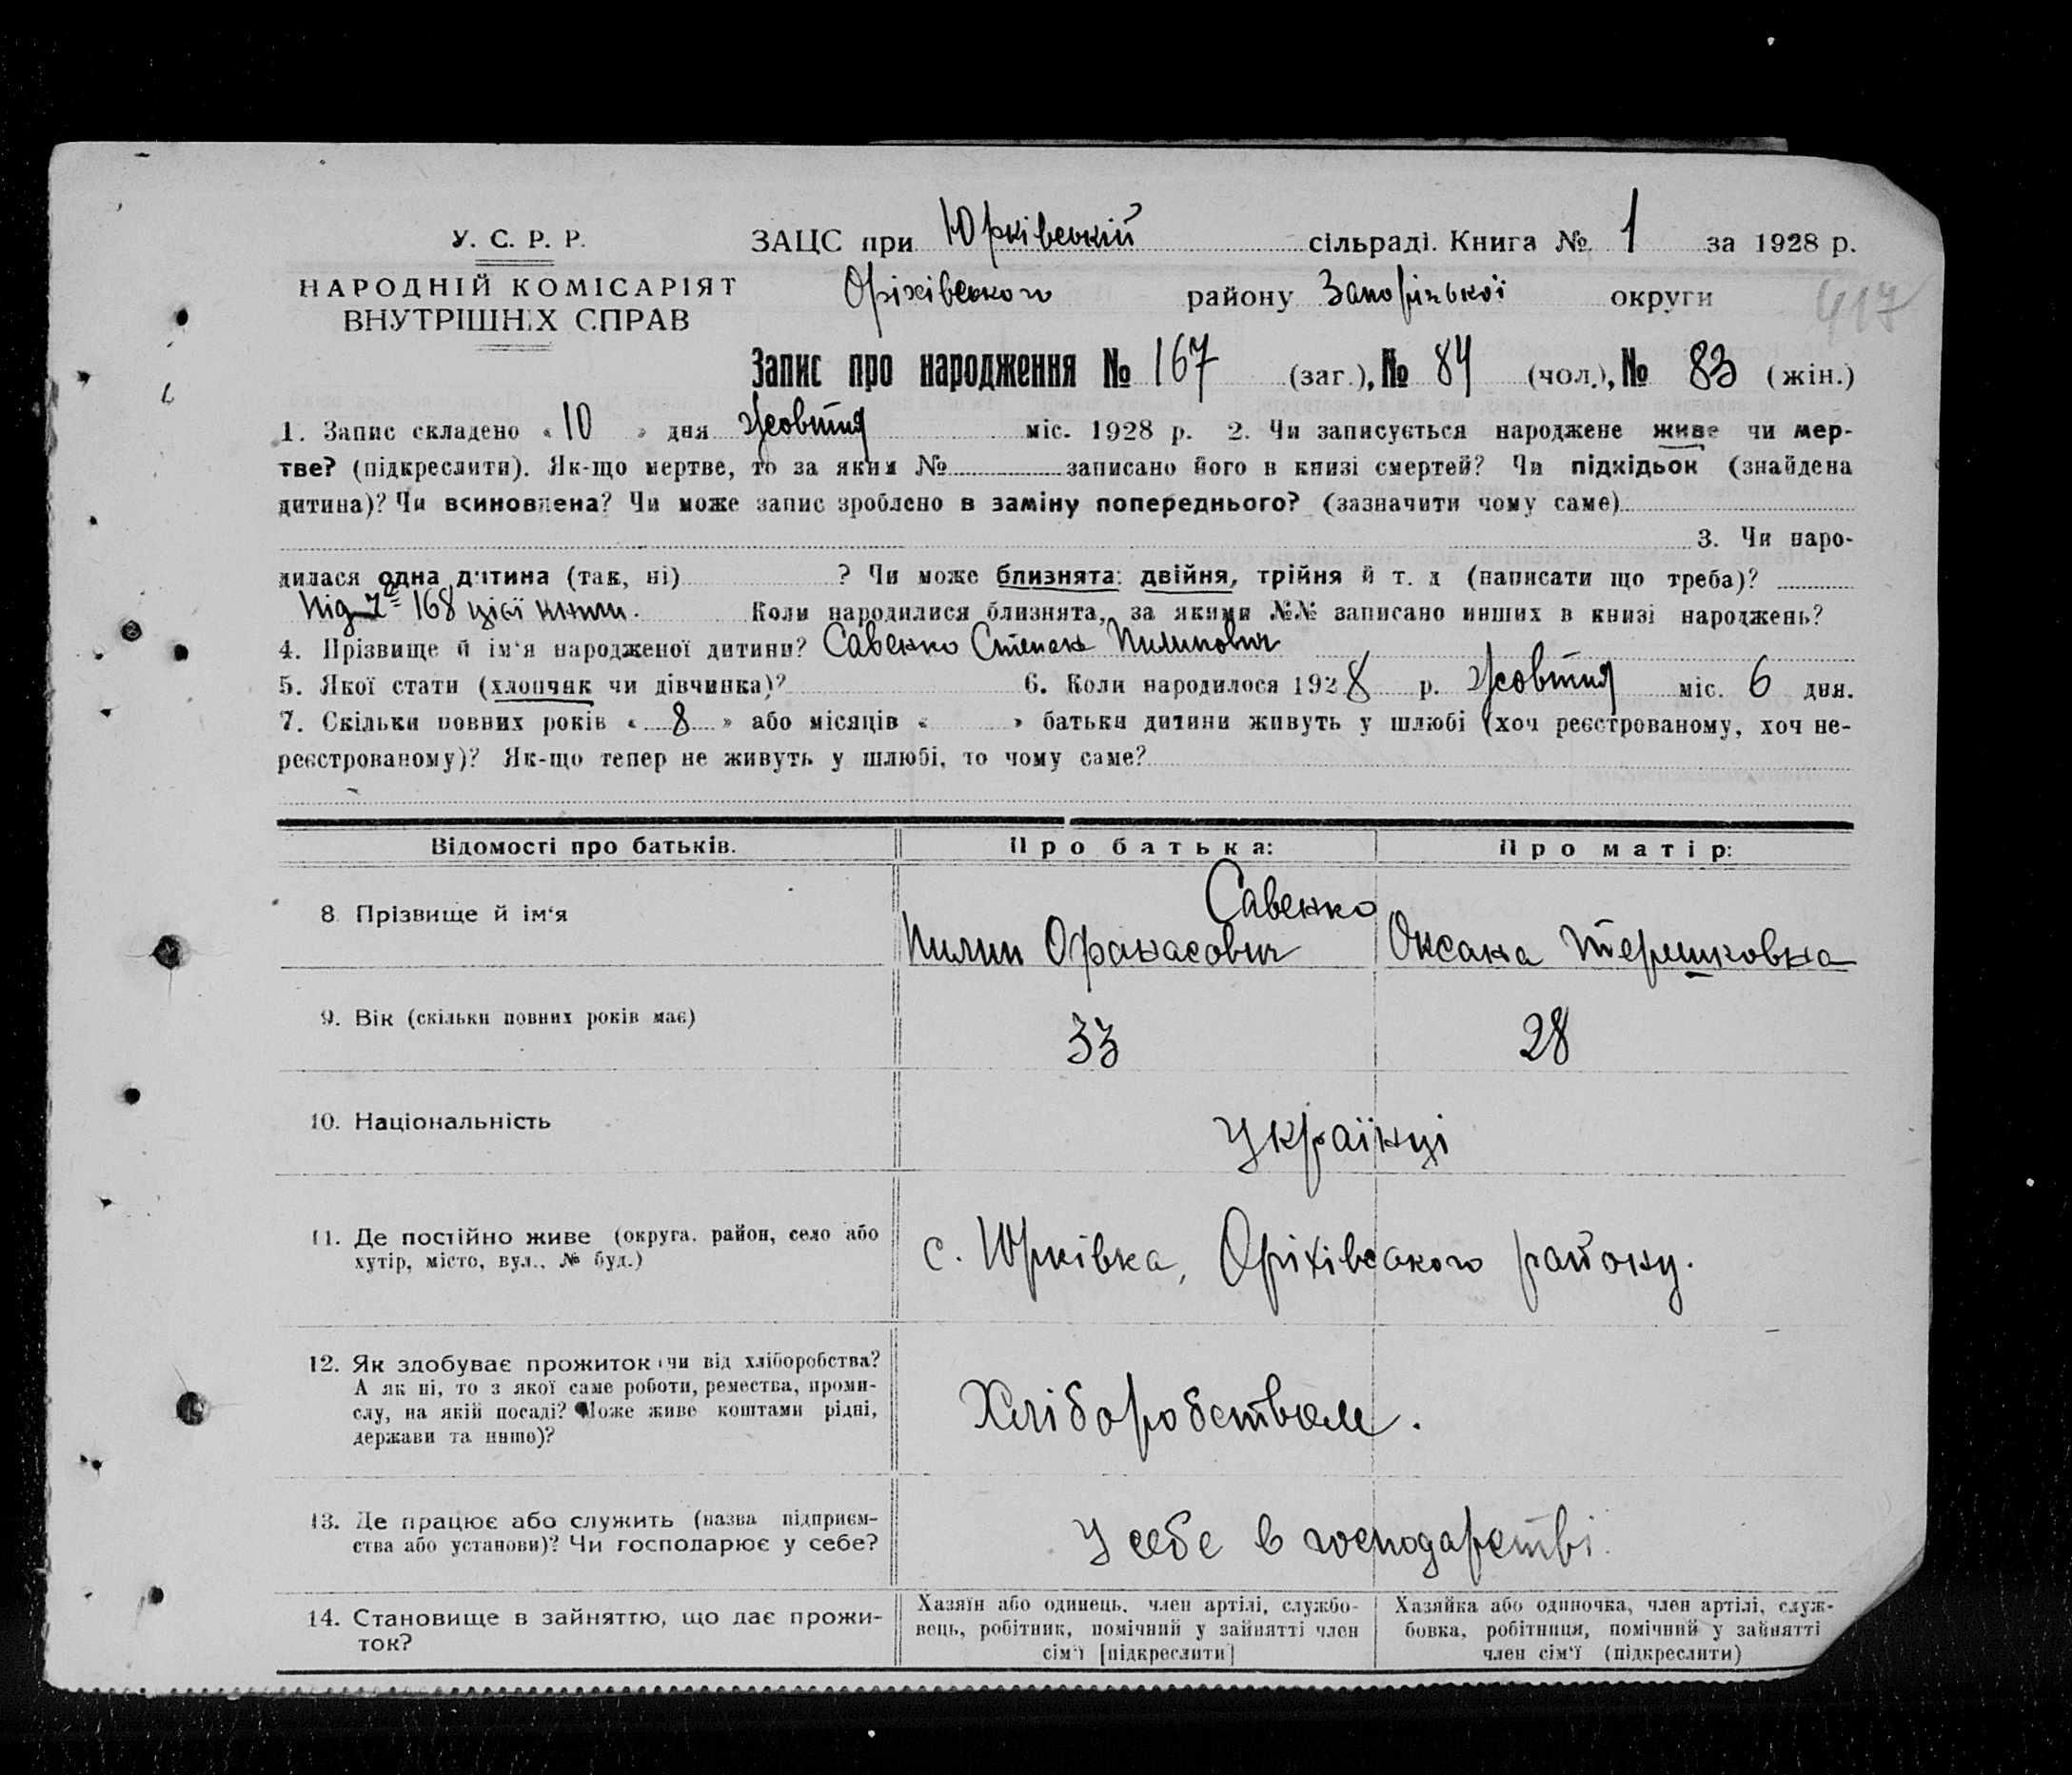 У. С. Р. Р.
НАРОДНІЙ КОМІСАРІЯТ
ВНУТРІШНІХ СПРАВ
ЗАЦС при Юрківській сільраді. Книга № 1 за 1928 р.
Оріхівського району Запорізької округи
417
Запис про народження № 167 (заг.), № 84 (чол.), № 83 (жін.)
1. Запис складено « 10 » дня Жовтня міс. 1928 р. 2. Чи записується народжене живе чи мер-
тве? (підкреслити). Як-що мертве, то за яким № записано його в книзі смертей? Чи підкідьок (знайдена
дитина)? Чи всиновлена? Чи може запис зроблено в заміну попереднього? (зазначити чому саме)
3. Чи наро-
дилася одна дитина (так, ні) ? Чи може близнята: двійня, трійня й т. д (написати що треба)?
під № 168 цієї книги. Коли народилися близнята, за якими №№ записано инших в книзі народжень?
4. Прізвище й ім'я народженої дитини? Савенко Степан Пилипович
5. Якої стати (хлопчик чи дівчинка)? 6. Коли народилося 1928 р. Жовтня міс. 6 дня.
7. Скільки повних років « 8 » або місяців « » батьки дитини живуть у шлюбі (хоч реєстрованому, хоч не-
реєстрованому)? Як-що тепер не живуть у шлюбі, то чому саме?
Відомості про батьків. Про батька: Про матір:
8. Прізвище й ім'я Савенко
Пилип Офанасович Оксана Терешковна
9. Вік (скільки повних років має) 33 28
10. Національність Українці
11. Де постійно живе (округа, район, село або
хутір, місто, вул., № буд.)
с. Юрківка, Оріхівського району.
12. Як здобуває прожиток чи від хліборобства?
А як ні, то з якої саме роботи, ремества, проми-
слу, на якій посаді? Може живе коштами рідні,
держави та инше)?
Хліборобством.
13. Де працює або служить (назва підприєм-
ства або установи)? Чи господарює у себе?
У себе в господарстві.
14. Становище в зайняттю, що дає прожи-
ток?
Хазяїн або одинець, член артілі, службо-
вець, робітник, помічний у зайнятті член
сім'ї [підкреслити]
Хазяйка або одиночка, член артілі, служ-
бовка, робітниця, помічний у зайнятті
член сім'ї (підкреслити)